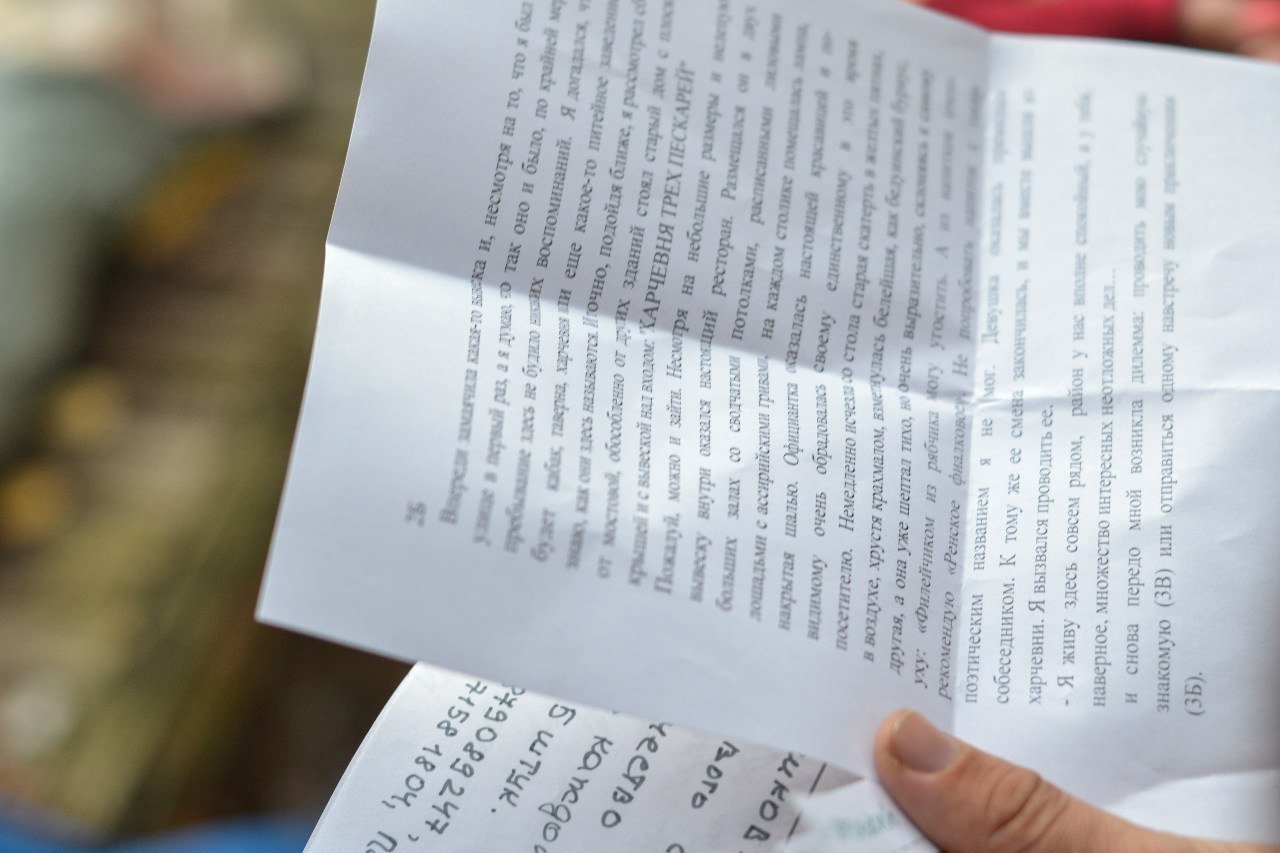 2Б
Впереди замаячила какая-то вывеска и, несмотря на то, что я был
улице в первый раз, а я думаю, что так оно и было, по крайней мер
пребывание здесь не будило никаких воспоминаний. Я догадался, чт
будет кабак, таверна, харчевня или еще какое-то питейное заведени
знаю, как они здесь называются. И точно, подойдя ближе, я рассмотрел сб
от мостовой, обособленно от других зданий стоял старый дом с плоск
крышей и с вывеской над входом: "ХАРЧЕВНЯ ТРЕХ ПЕСКАРЕЙ"
Пожалуй, можно и зайти. Несмотря на небольшие размеры и нелепую
вывеску внутри оказался настоящий ресторан. Размещался он в двух
больших залах со сводчатыми потолками, расписанными лиловыми
лошадьми с ассирийскими гривами, на каждом столике помещалась лампа,
накрытая шалью. Официантка оказалась настоящей красавицей и по-
видимому очень обрадовалась своему единственному в это время
посетителю. Немедленно исчезла со стола старая скатерть в желтых пятнах,
в воздухе, хрустя крахмалом, взметнулась белейшая, как бедуинский бурнус,
другая, а она уже шептал тихо, но очень выразительно, склоняясь к самому
уху: «Филейчиком из рябчика могу угостить. А из напитков
рекомендую «Ренское фиалковое». Не попробовать напиток с таким
поэтическим названием я не смог. Девушка оказалась
собеседником. К тому же ее смена закончилась, и мы вместе вышли из
харчевни. Я вызвался проводить ее.
- Я живу здесь совсем рядом, район у нас вполне спокойный, а у тебя,
наверное, множество интересных неотложных дел...
и снова передо мной возникла дилемма: проводить мою случайную
знакомую (3В) или отправиться одному навстречу новым приключениям
(3Б).
79089247,
71581804,
5 штук.
каждо
чество
вого
шков